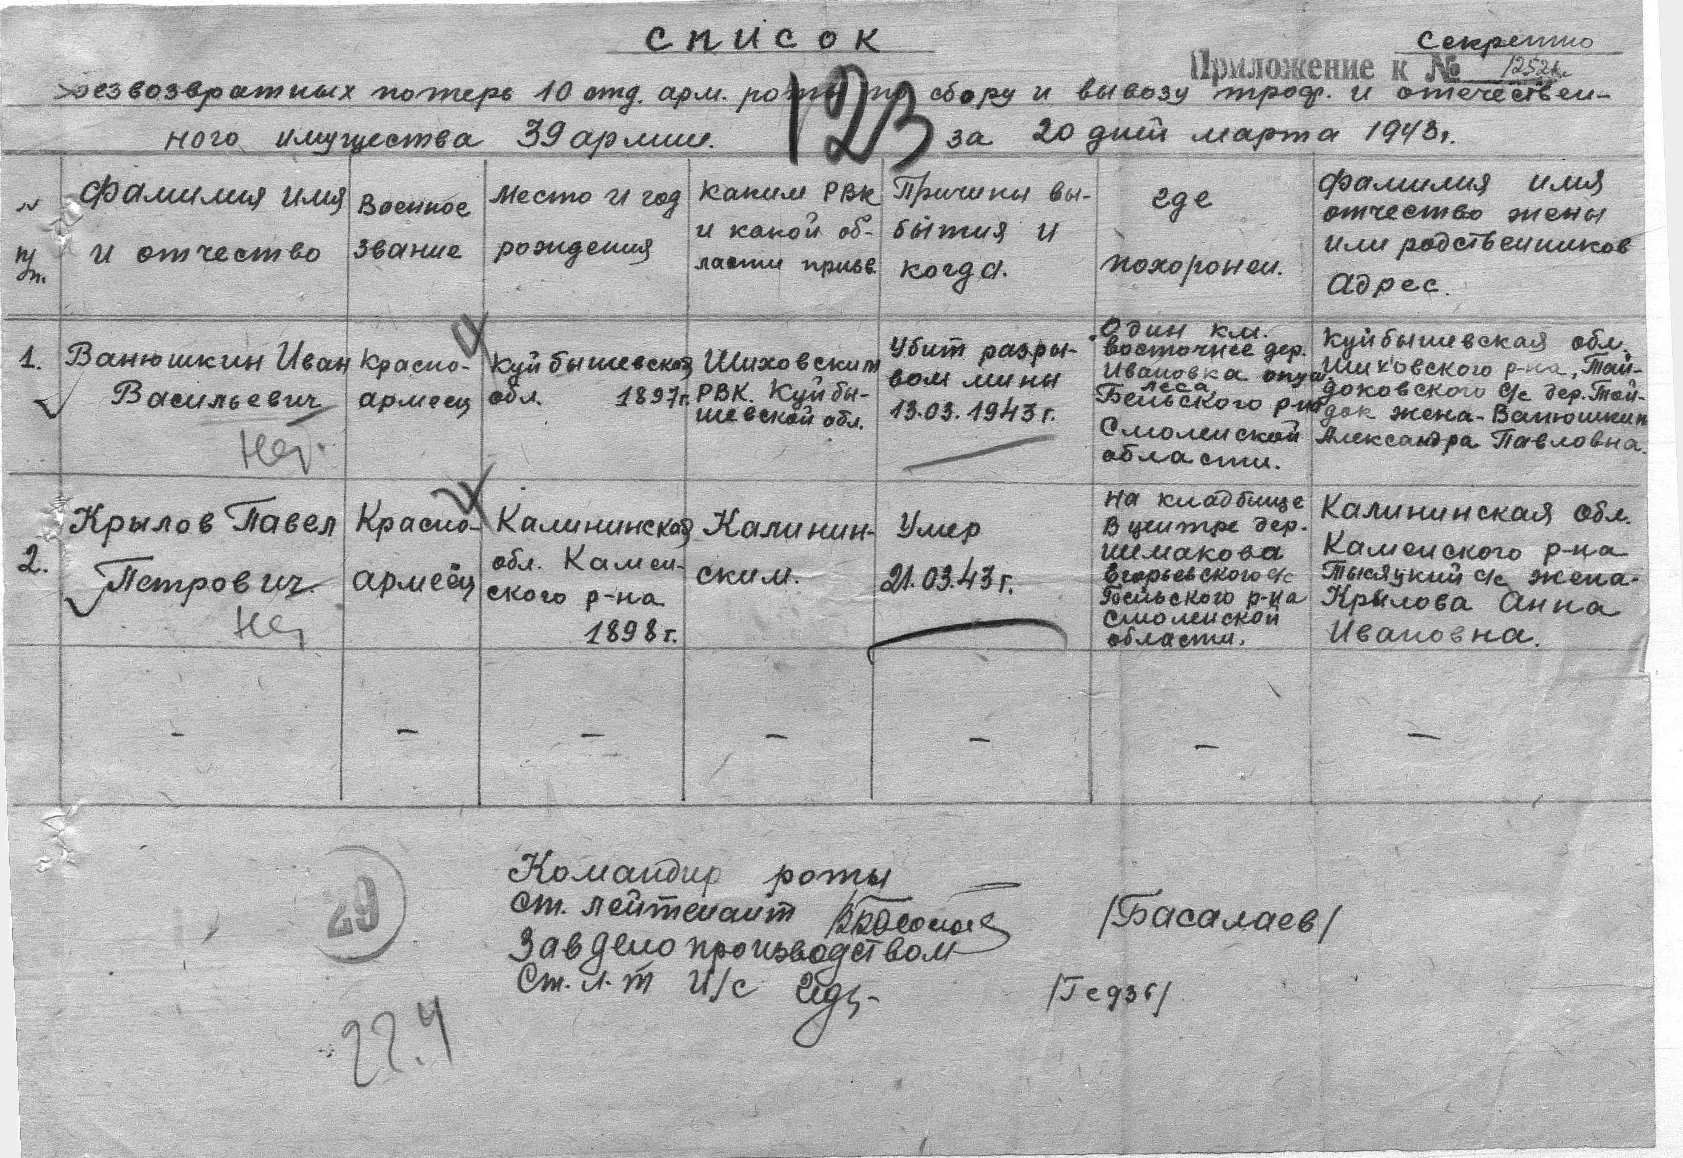 Список
Секретно
Приложение к № 1252с
безвозвратных потерь 10 отд. арм. роты по сбору и вывозу троф. и отечествен-
ного имущества 39 армии. за 20 дней марта 1943г.
123
№ п/п.
Фамилия имя
и отчество
Военное
звание
Место и год
рождения
Каким РВК
и какой об-
ласти призв.
Причины вы-
бытия и
когда.
где
похоронен.
Фамилия имя
отчество жены
или родственников
Адрес.
1.
Ванюшкин Иван
Васильевич
Нет.
Красно-
армеец
Куйбышевская
обл. 1897г.
Шиховским
РВК. Куйбы-
шевской обл.
Убит разры-
вом мины
13.03.1943г.
Один км.
восточнее дер.
Ивановка опуш
леса
Бельского р-на
Смоленской
области.
Куйбышевская обл.
Шиховского р-на, Той-
доковского с/с дер. Той-
док жена-Ванюшкин
Александра Павловна.
2.
Крылов Павел
Петрович.
Нет
Красно-
армеец
Калининская
обл. Камен-
ского р-на
1898г.
Калинин-
ским.
Умер
21.03.43г.
На кладбище
в центре дер.
Шмакова
Егорьевского с/с
Бельского р-на
Смоленской
области.
Калининская обл.
Каменского р-на
Тысяцкий с/с жена-
Крылова Анна
Ивановна.
- - - - - - -
Командир роты
ст. лейтенант /Басалаев/
Завделопроизводством
Ст. л-т И/с
29
22.4